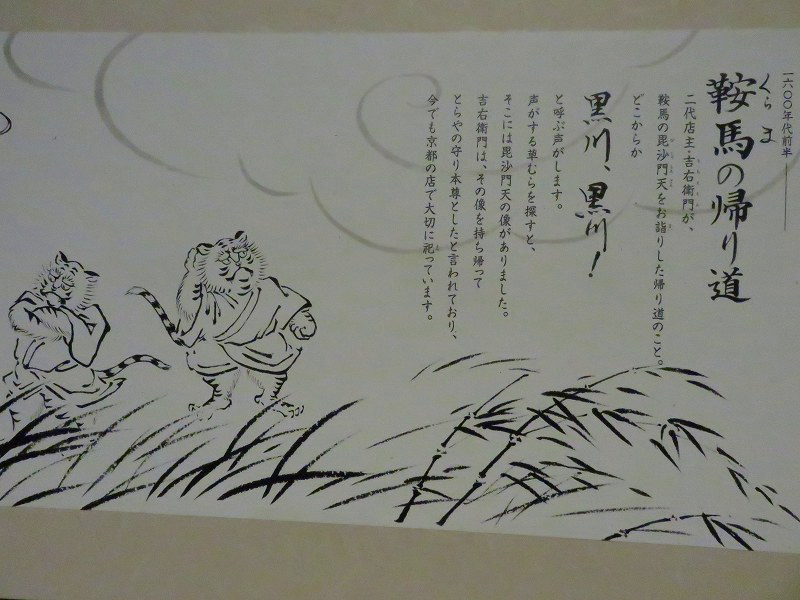 一六〇〇年代前半
鞍馬の帰り道
くらま
二代店主吉右衛門が、
鞍馬の毘沙門天をお詣りした帰り道のこと。
どこからか
黒川、黒川！
と呼ぶ声がします。
声がする草むらを探すと、
そこには毘沙門天の像がありました。
吉右衛門は、その像を持ち帰って
とらやの守り本尊としたと言われており、
今でも京都の店で大切に祀っています。